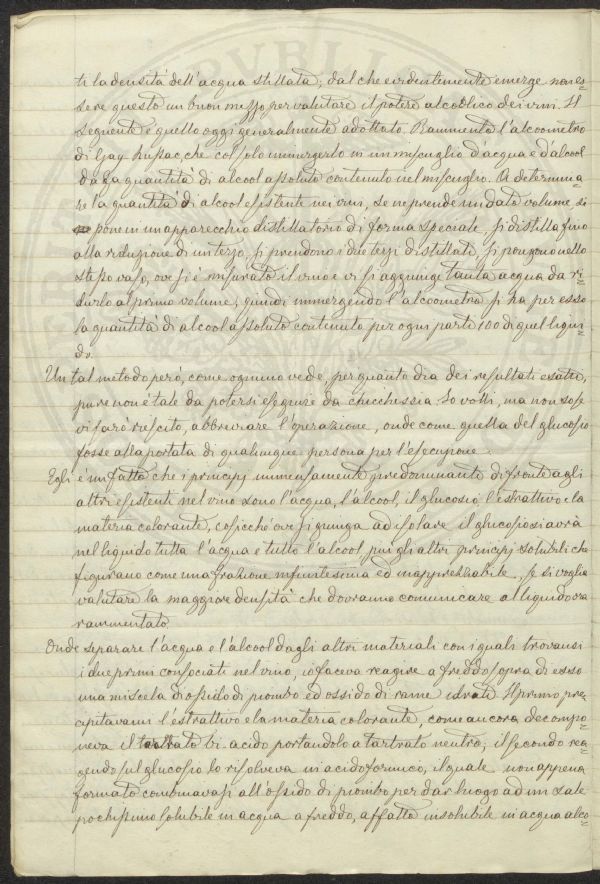 ti la densità dell'acqua stillata; dal che evidentemente emerge non es=
sere questo un buon mezzo per valutare il potere alcoolico dei vini. Il
seguente è quello oggi generalmente adottato. Rammento l'alcoometro
di Gay Lussac, che col solo immergerlo in un miscuglio d'acqua e d'alcool
dà la quantità di alcool assoluto contenuto nel miscuglio. A determina=
re la quantità di alcool esistente nei vini, se ne prende un dato volume si
pone in un apparecchio distillatorio di forma speciale, si distilla fino
alla riduzione di un terzo, si prendono i due terzi distillati, si pongono nello
stesso vaso, ove si è misurato il vino e vi si aggiunge tanta acqua da ri=
durlo al primo volume; quindi immergendo l'alcoometro si ha per esso
la quantità di alcool assoluto contenuto per ogni parti 100 di quel liqui=
do.
Un tal metodo però, come ognuno vede, per quanto dia dei resultati esatti,
pure non è tale da potersi eseguire da chicchessia. Io volli, ma non so se
vi sarò riescito, abbreviare l'operazione, onde come quella del glucosio
fosse alla portata di qualunque persona per l'esecuzione.
Egli è un fatto che i principj immensamente predominanti di fronte agli
altri esistenti nel vino sono l'acqua, l'alcool, il glucosio l'estrattivo e la
materia colorante, cosicchè ove si giunga ad isolare il glucosio si avrà
nel liquido tutta l'acqua e tutto l'alcool, più gli altri principj solubili che
figurano come una frazione infinitesima ed inapprezzabile, se si voglia
valutare la maggiore densità che dovranno comunicare al liquido ora
rammentato.
Onde separare l'acqua e l'alcool dagli altri materiali con i quali trovansi
i due primi consociati nel vino, io faceva reagire a freddo sopra di esso
una miscela di ossido di piombo ed ossido di rame idrati. Il primo pre=
cipitavami l'estrattivo e la materia colorante, come ancora decompo=
neva il tartrato bi-acido portandolo a tartrato neutro; il secondo rea=
gendo sul glucosio lo risolveva in acido formico, il quale non appena
formato combinavasi all'ossido di piombo per dar luogo ad un sale
pochissimo solubile in acqua a freddo, affatto insolubile in acqua alco=